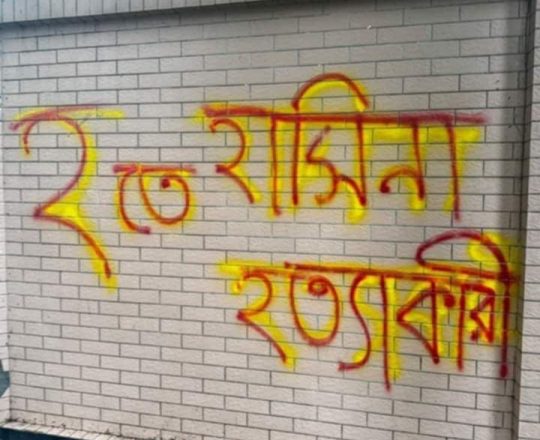 হ তে হাসিনা
হত্যাকারী